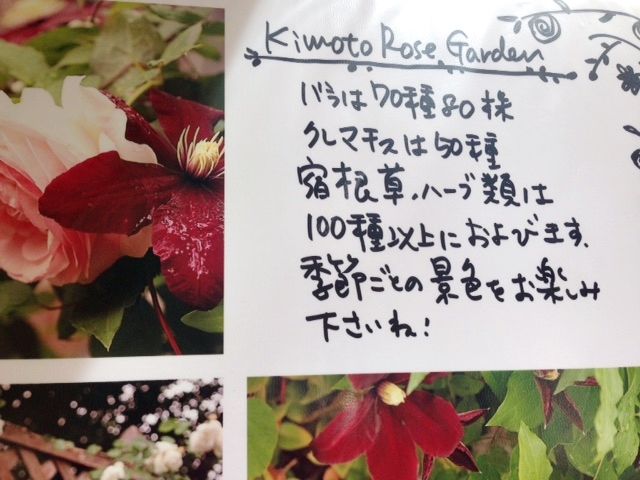 Kimoto Rose Garden
バラは70種80株
クレマチスは50種
宿根草、ハーブ類は
100種以上におよびます、
季節ごとの景色をお楽しみ
下さいね!